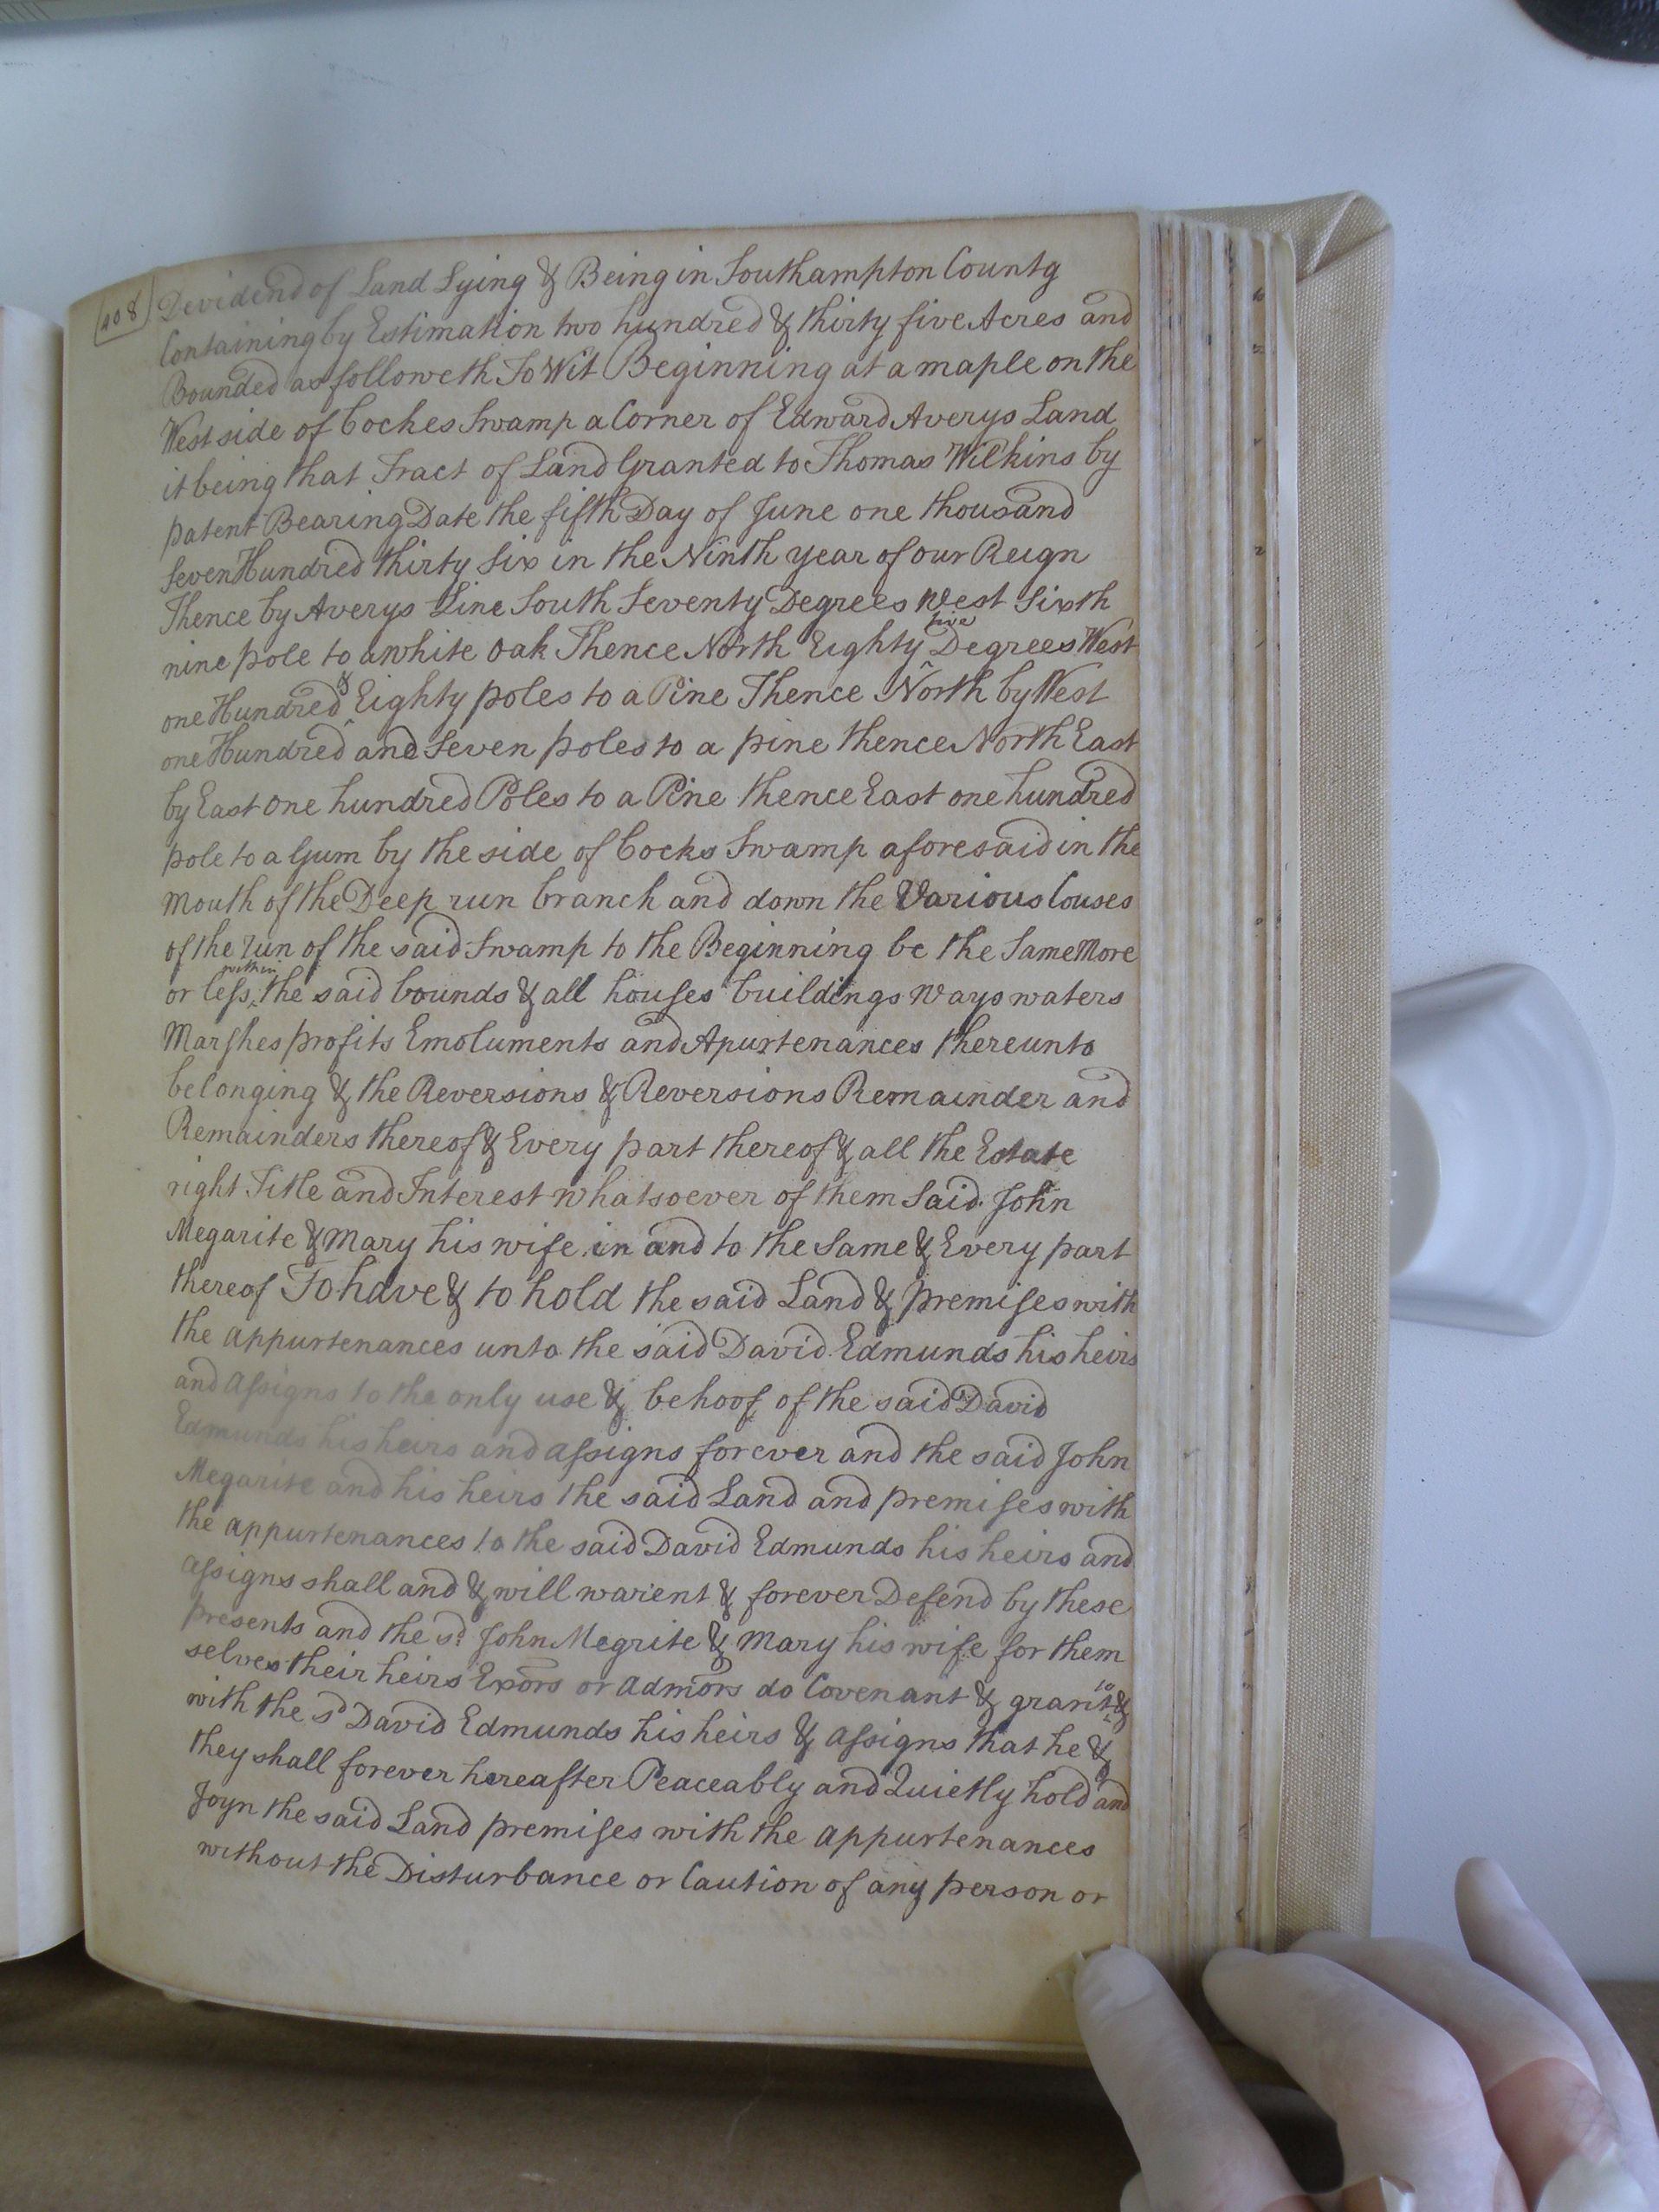 408
Devidend of Land Lying & Being in Southampton County
Containing by Estimation two hundred & thirty five Acres and
Bounded as followeth To Wit Beginning at a maple on the
West side of Cockes Swamp a Corner of Edward Averys Land
it being that Tract of Land Granted to Thomas Wilkins by
patent Bearing Date the fifth Day of June one thousand
Seven Hundred thirty Six in the Ninth year of our Reign
Thence by Averys Line South Seventy Degrees West Sixth
nine pole to a white Oak Thence North Eighty five Degrees West
one Hundred & Eighty poles to a Pine Thence North by West
one Hundred and Seven poles to a pine thence North East
by East one hundred Poles to a Pine thence East one hundred
pole to a Gum by the side of Cocks Swamp aforesaid in the
Mouth of the Deep run branch and down the Various Couses
of the run of the said Swamp to the Beginning be the Same More
or less within the said bounds & all houses buildings ways waters
Marshes profits Emoluments and Apurtenances thereunto
belonging & the Reversions & Reversions Remainder and
Remainders thereof & Every part thereof & all the Estate
right Title and Interest whatsoever of them Said John
Megarite & Mary his wife in and to the Same & Every part
thereof To have & to hold the said Land & premises with
the appurtenances unto the said David Edmunds his heirs
and assigns to the only use & behoof of the said David
Edmunds his heirs and assigns forever and the said John
Megarite and his heirs the said Land and premises with
the appurtenances to the said David Edmunds his heirs and
assigns shall and & will warient & forever Defend by these
presents and the sd. John Megrite & Mary his wife for them
selves their heirs Exors or admors do Covenant & grant to &
with the sd David Edmunds his heirs & assigns that he &
they shall forever hereafter Peaceably and Quietly hold and
Joyn the said Land premises with the appurtenances
without the Disturbance or Caution of any person or